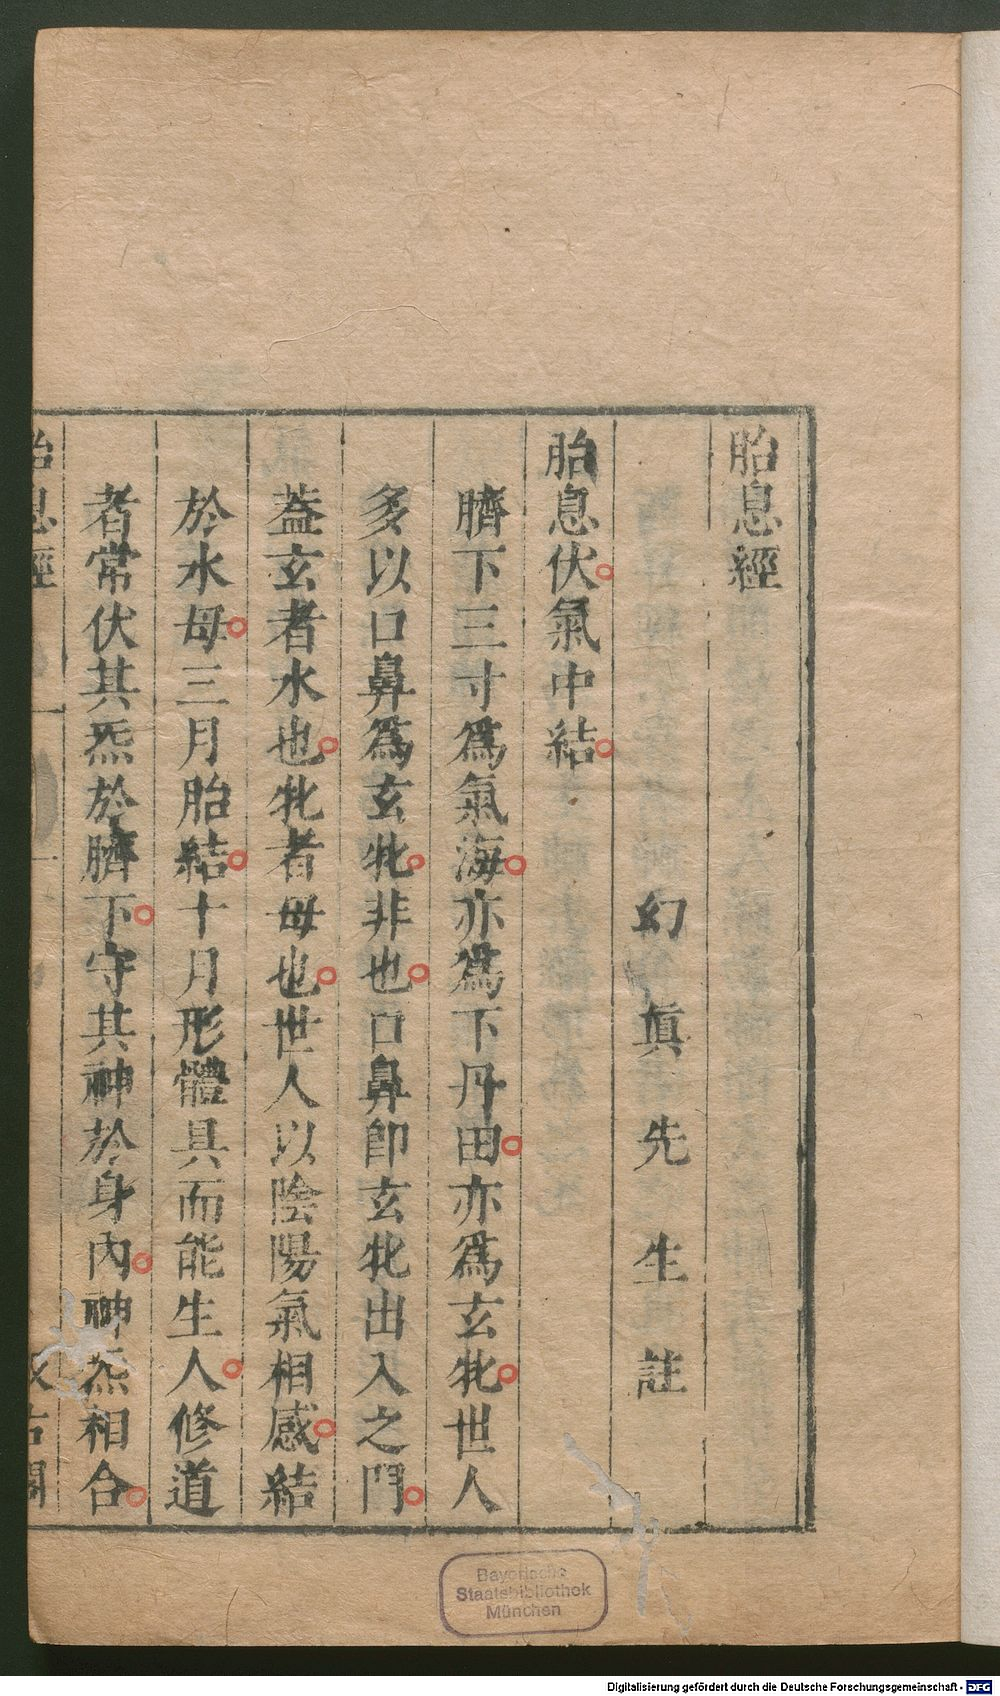 胎息經
幻眞先生註
胎息伏氣中結
臍下三寸爲氣海亦爲下丹田亦爲玄牝世人
多以口鼻爲玄牝非也口鼻卽玄牝出入之門
葢玄者水也牝者母也世人以陰陽氣相感結
於水母三月胎結十月形體具而能生人修道
者常伏其炁於臍下守其神於身內神炁相合
胎息經
一
古閣
Bayerische
Staatsbibliothek
München
Digitalisierung gefördert durch die Deutsche Forschungsgemeinschaft - DFG